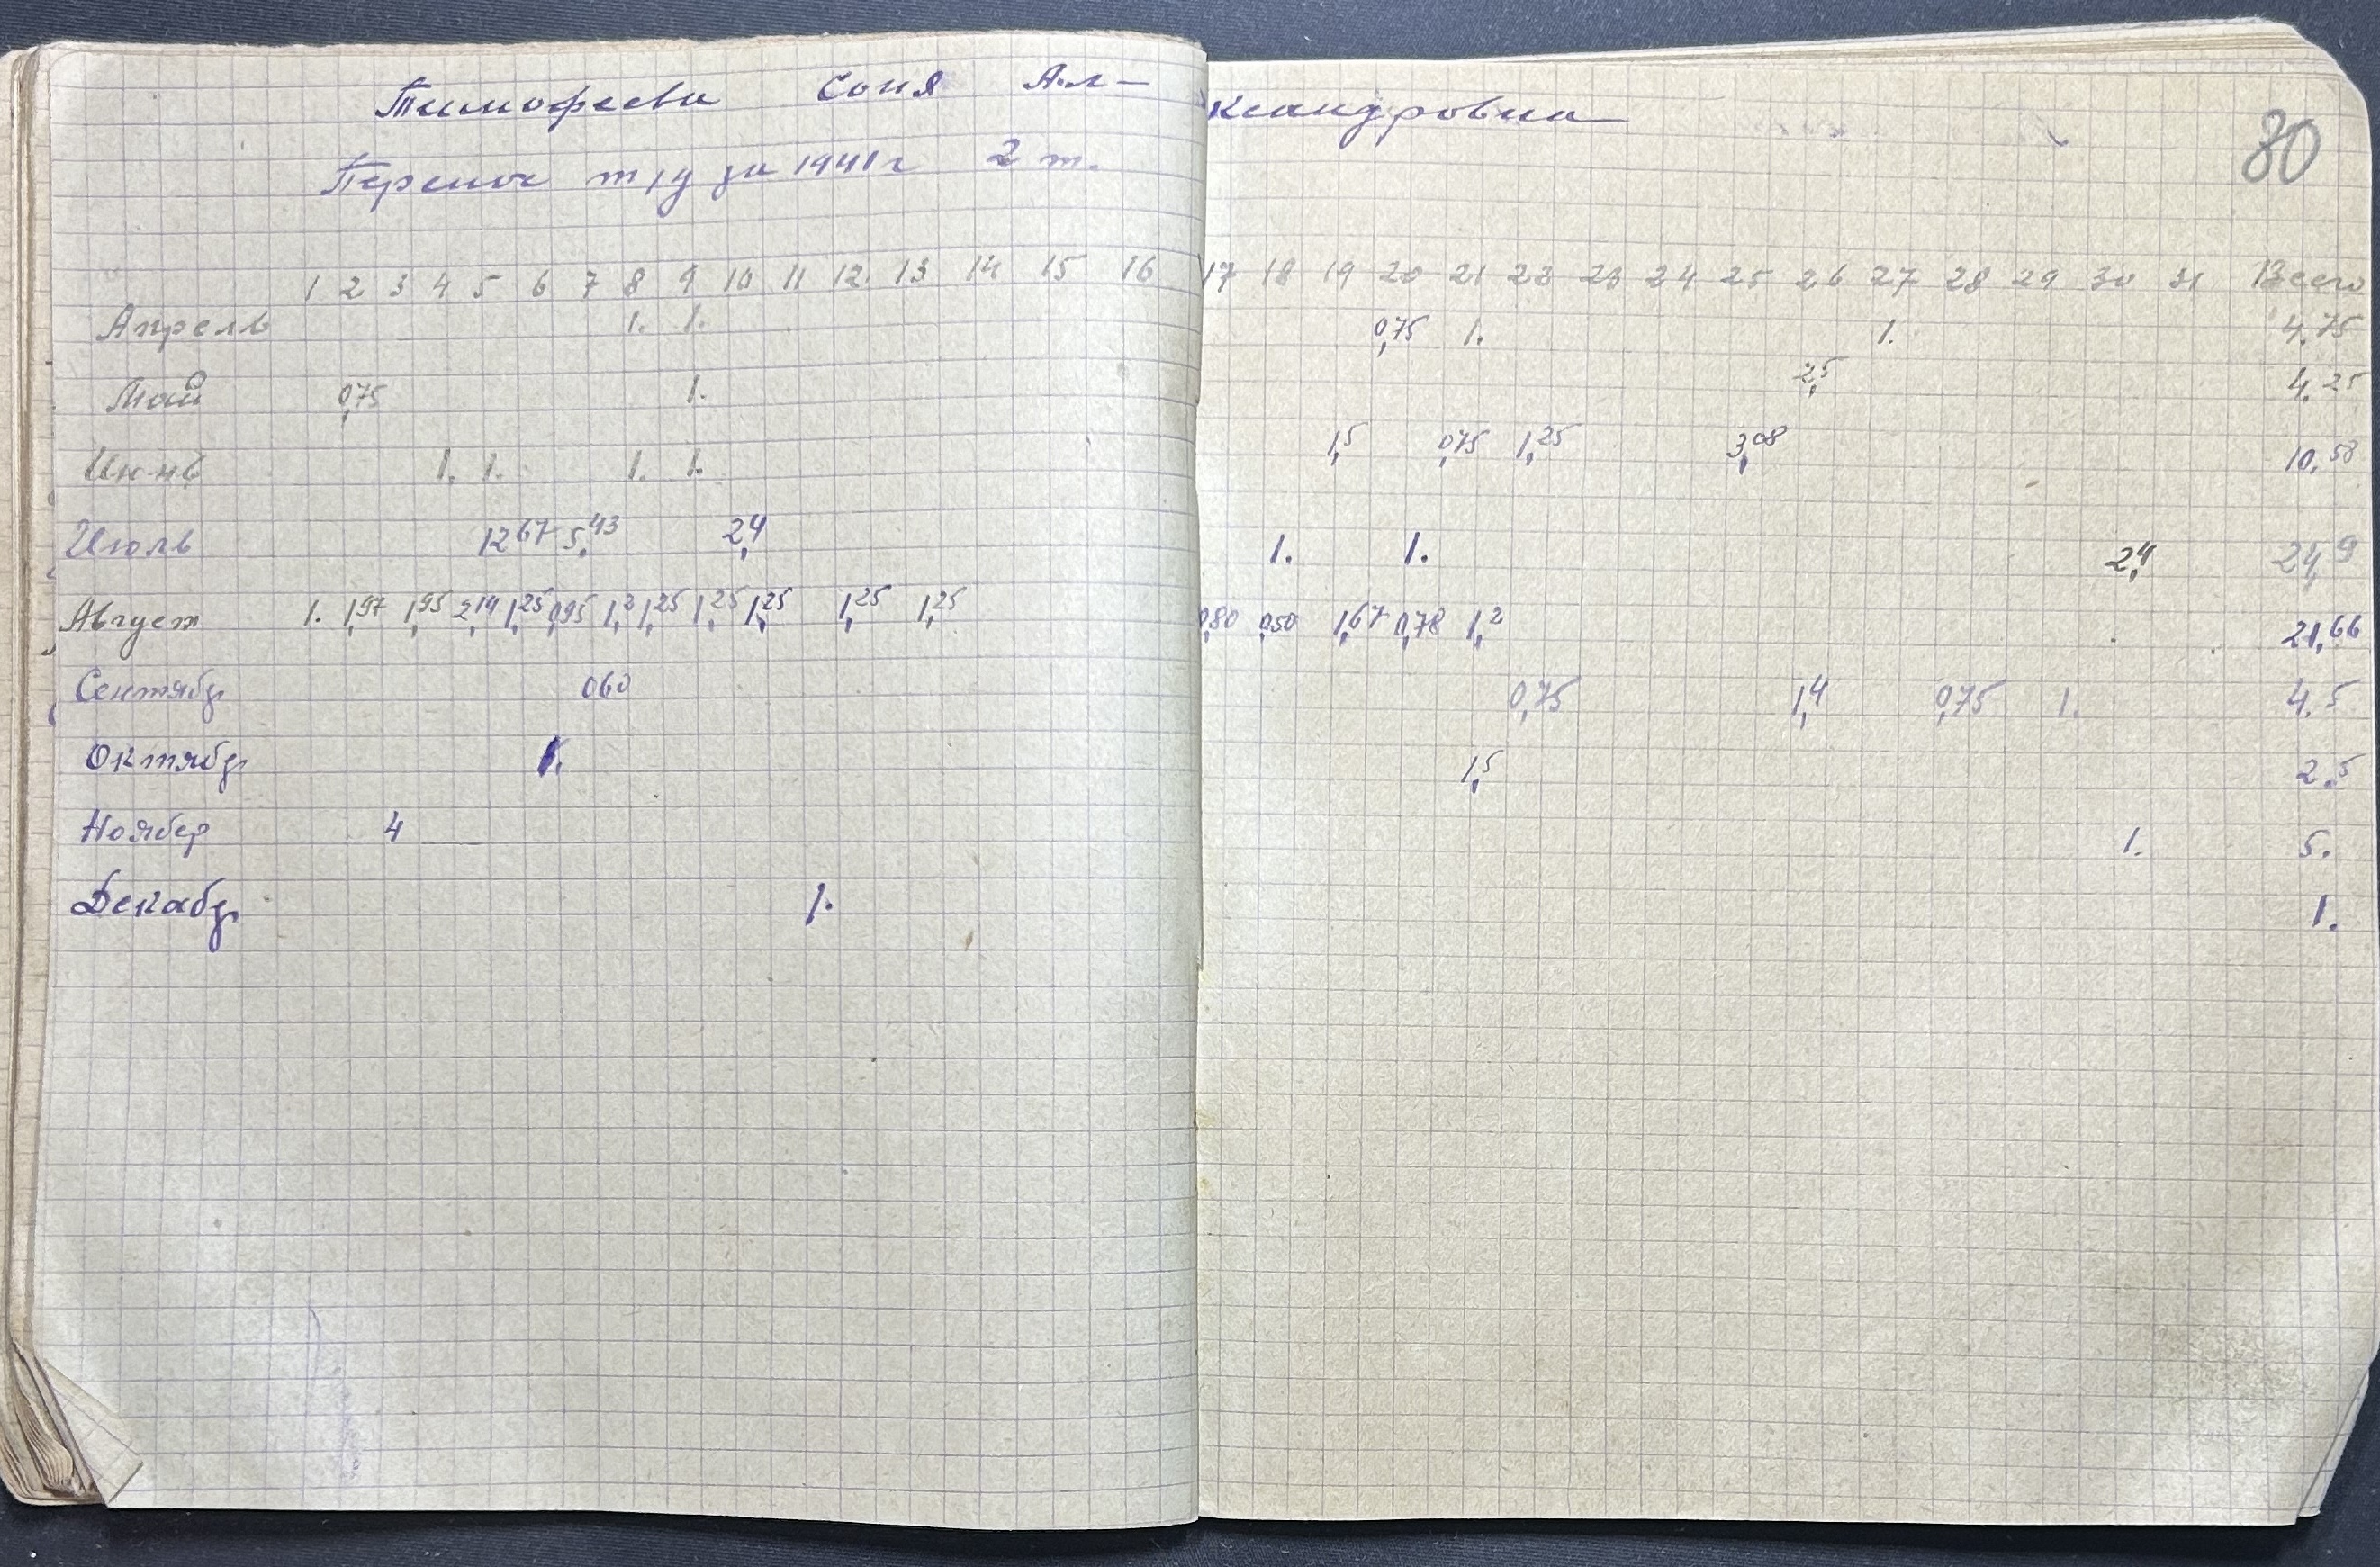 Тимофеева Соня Ал-ксандровна
80
Перенос т/д за 1941г 2 т.
1 2 3 4 5 6 7 8 9 10 11 12. 13 14 15 16 17 18 19 20 21 22 23 24 25 26 27 28 29 30 31 Всего
Апрель 1. 1. 0,75 1. 1. 4.75
Май 0,75 1. 2,5 4.25
Июнь 1. 1. 1. 1. 1,5 0,75 1,25 3,08 10,58
Июль 12 67 5,43 2,4 1. 1. 2,4 24,9
Август 1. 1,97 1,95 2,14 1,25 0,95 1,2 1,25 1,25 1,25 1,25 1,25 0,80 0,50 1,67 0,78 1,2 21,66
Сентябр 060 0,75 1,4 0,75 1. 4.5
Октябр 1. 1,5 2.5
Ноябер 4 1. 5.
Декабр 1. 1.